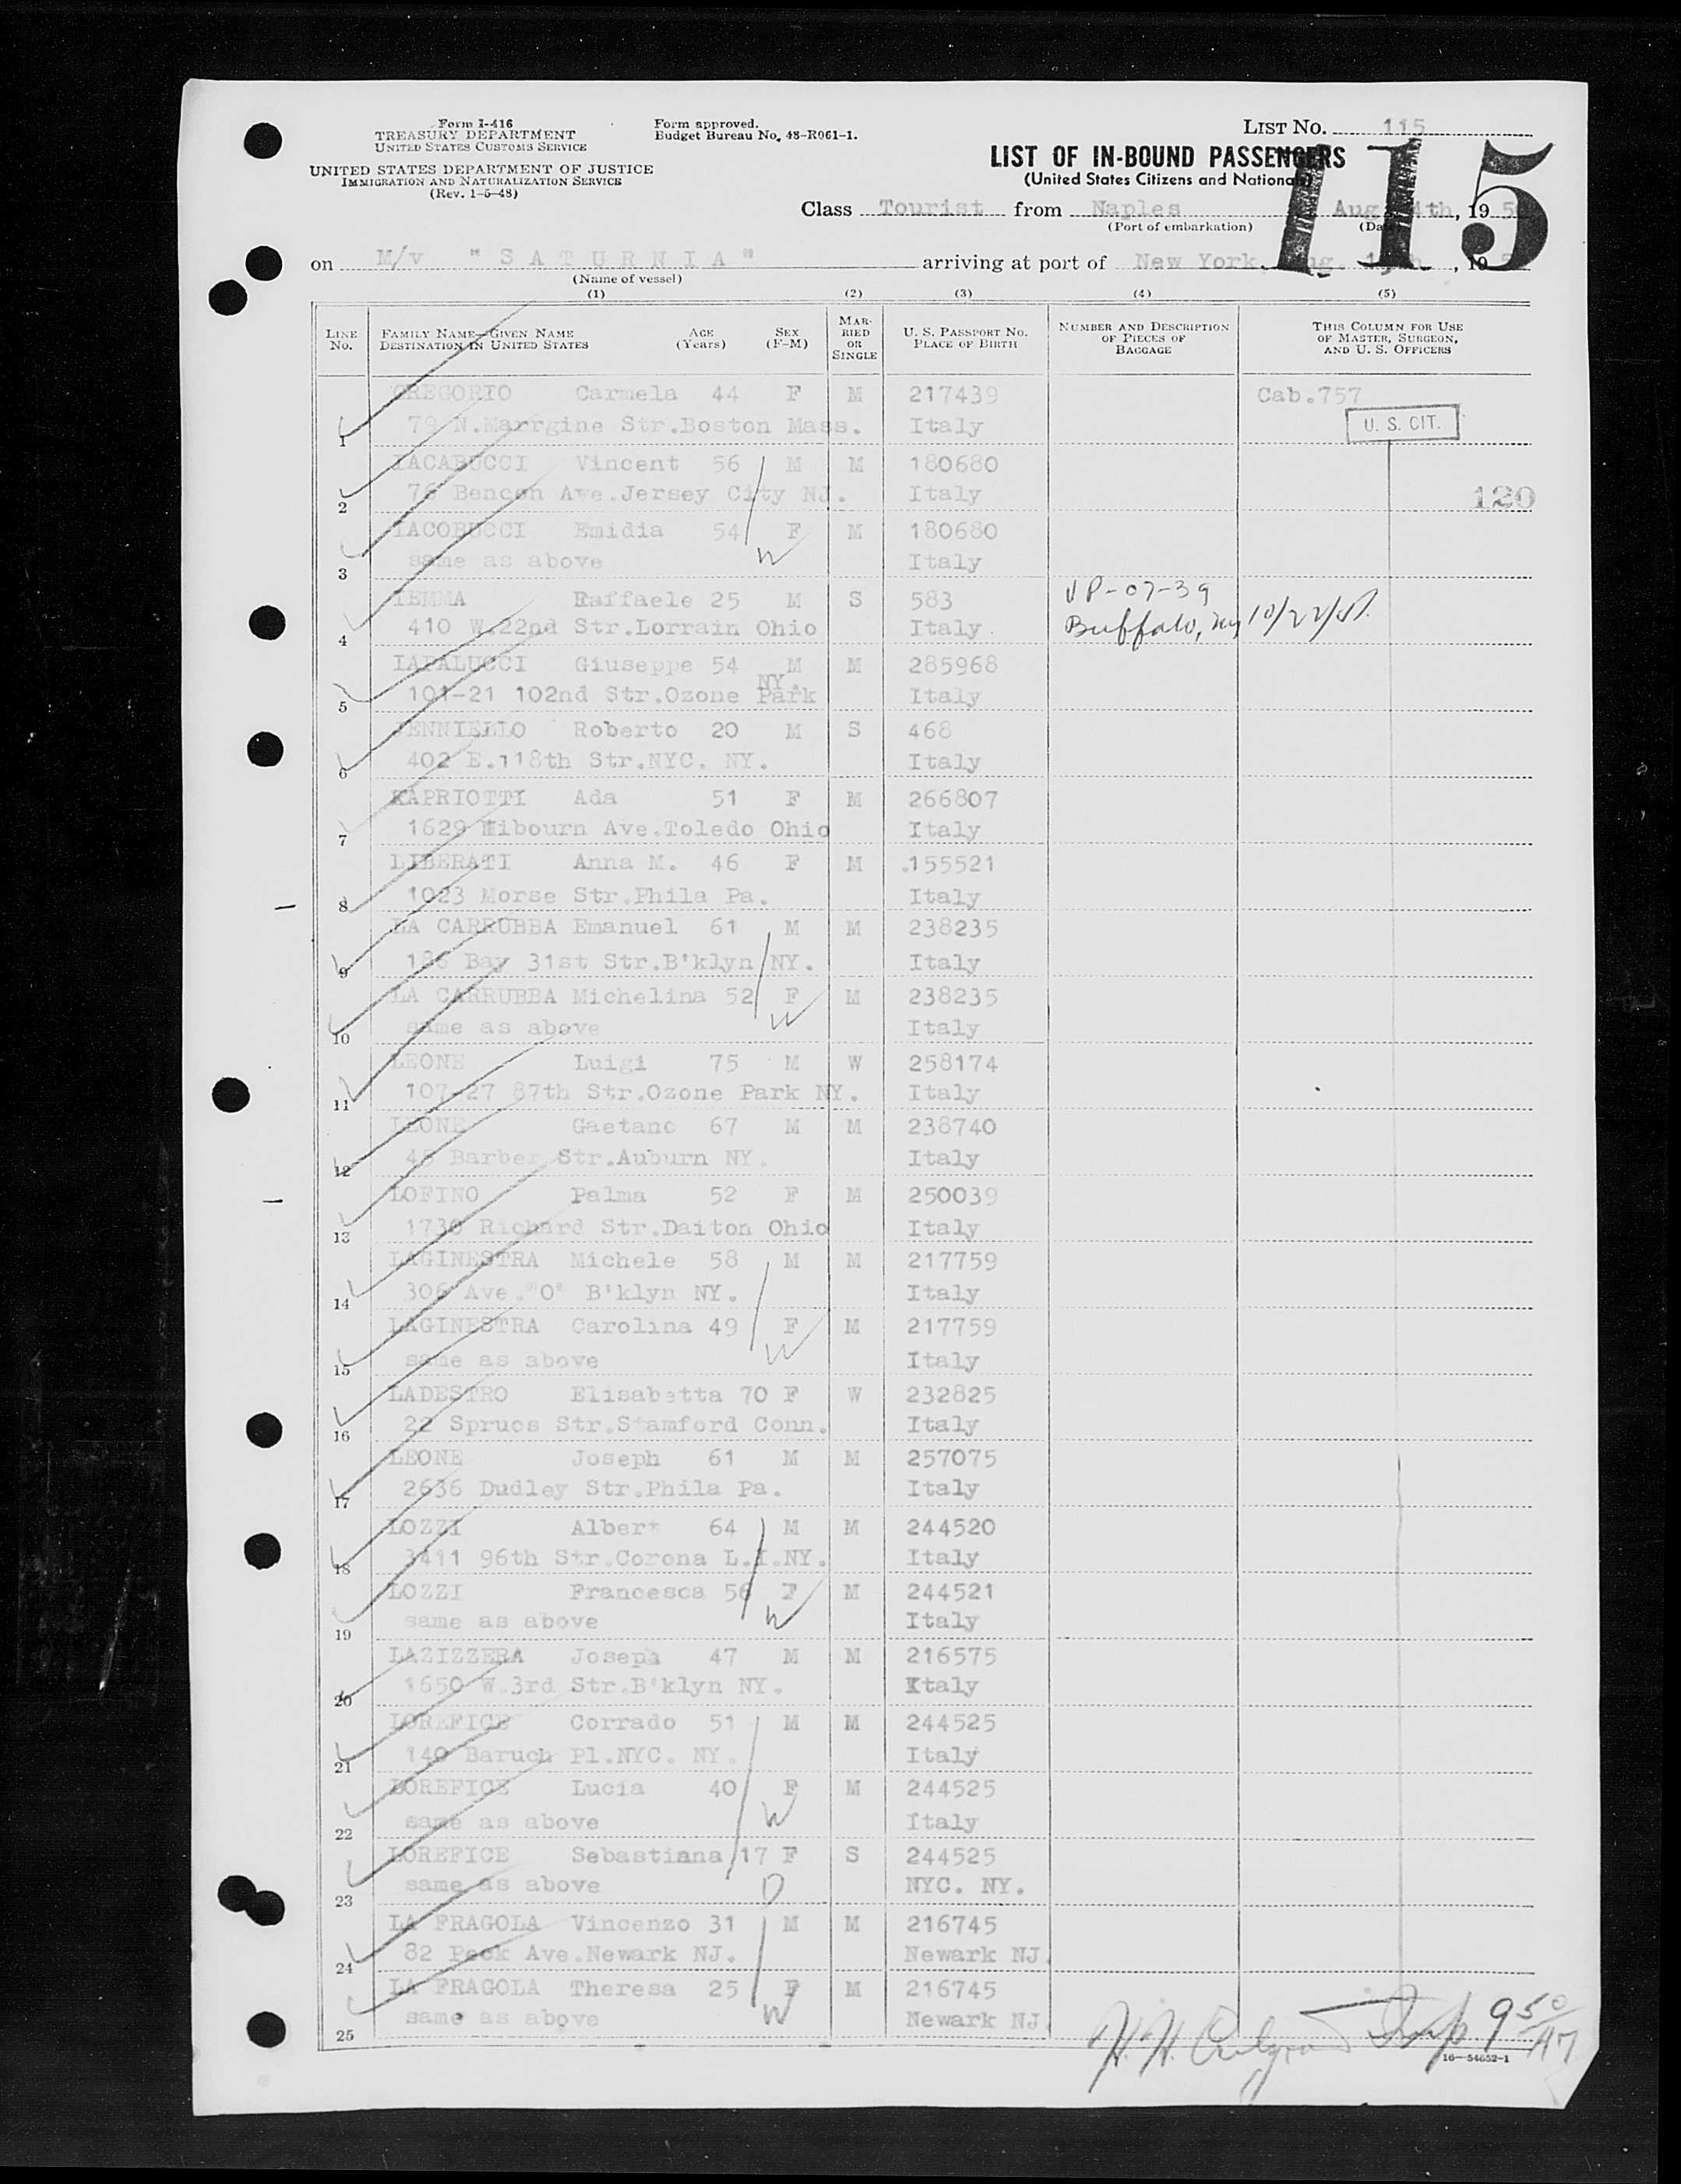 Form I-416
TREASURY DEPARTMENT
UNITED STATES CUSTOMS SERVICE
UNITED STATES DEPARTMENT OF JUSTICE
IMMIGRATION AND NATURALIZATION SERVICE
(Rev. 1-5-48)
Form approved.
Budget Bureau No. 48-R061-1.
LIST NO. 115
115
LIST OF IN-BOUND PASSENGERS
(United States Citizens and Nationals)
Class Tourist from Naples Aug 4th, 19 5
(Port of embarkation) (Date)
on M/v "SATURNIA" arriving at port of New York, Aug. , 19
(Name of vessel)
(1) (2) (3) (4) (5)
LINE No. FAMILY NAME—GIVEN NAME DESTINATION IN UNITED STATES AGE (Years) SEX (F-M) MARRIED OR SINGLE U. S. PASSPORT NO. PLACE OF BIRTH NUMBER AND DESCRIPTION OF PIECES OF BAGGAGE THIS COLUMN FOR USE OF MASTER, SURGEON, AND U. S. OFFICERS
GREGORIO Carmela 44 F M 217439 Cab.757
1 79 N.Marrgine Str.Boston Mass. Italy U. S. CIT.
IACABUCCI Vincent 56 M M 180680
2 76 Bencon Ave.Jersey City NJ. Italy 120
IACOBUCCI Emidia 54 F M 180680
3 same as above W Italy
IEMMA Raffaele 25 M S 583 VP-07-39
4 410 W.22nd Str.Lorrain Ohio Italy Buffalo, ny 10/22/51.
IAPALUCCI Giuseppe 54 M M 285968
5 101-21 102nd Str.Ozone Park NY. Italy
JENNIELLO Roberto 20 M S 468
6 402 E.118th Str.NYC. NY. Italy
KAPRIOTTI Ada 51 F M 266807
7 1629 Mibourn Ave.Toledo Ohio Italy
LIBERATI Anna M. 46 F M .155521
8 1023 Morse Str.Phila Pa. Italy
LA CARRUBBA Emanuel 61 M M 238235
9 186 Bay 31st Str.B'klyn NY. Italy
LA CARRUBBA Michelina 52 F M 238235
10 same as above W Italy
LEONE Luigi 75 M W 258174
11 107-27 87th Str.Ozone Park NY. Italy
LEONE Gaetano 67 M M 238740
12 45 Barber Str.Auburn NY. Italy
LOFINO Palma 52 F M 250039
13 1730 Richard Str.Daiton Ohio Italy
LAGINESTRA Michele 58 M M 217759
14 306 Ave."O" B'klyn NY. Italy
LAGINESTRA Carolina 49 F M 217759
15 same as above W Italy
LADESTRO Elisabetta 70 F W 232825
16 22 Sprucs Str.Stamford Conn. Italy
LEONE Joseph 61 M M 257075
17 2636 Dudley Str.Phila Pa. Italy
LOZZI Albert 64 M M 244520
18 3411 96th Str.Corona L.I.NY. Italy
LOZZI Francesca 56 F M 244521
19 same as above W Italy
LAZIZZERA Joseph 47 M M 216575
20 1650 W.3rd Str.B'klyn NY. Italy
LOREFICE Corrado 51 M M 244525
21 140 Baruch Pl.NYC. NY. Italy
LOREFICE Lucia 40 F M 244525
22 same as above W Italy
LOREFICE Sebastiana 17 F S 244525
23 same as above D NYC. NY.
LA FRAGOLA Vincenzo 31 M M 216745
24 82 Peck Ave.Newark NJ. Newark NJ.
LA FRAGOLA Theresa 25 F M 216745
25 same as above W Newark NJ.
H. H. Insp 9 50 AM
16—54652-1